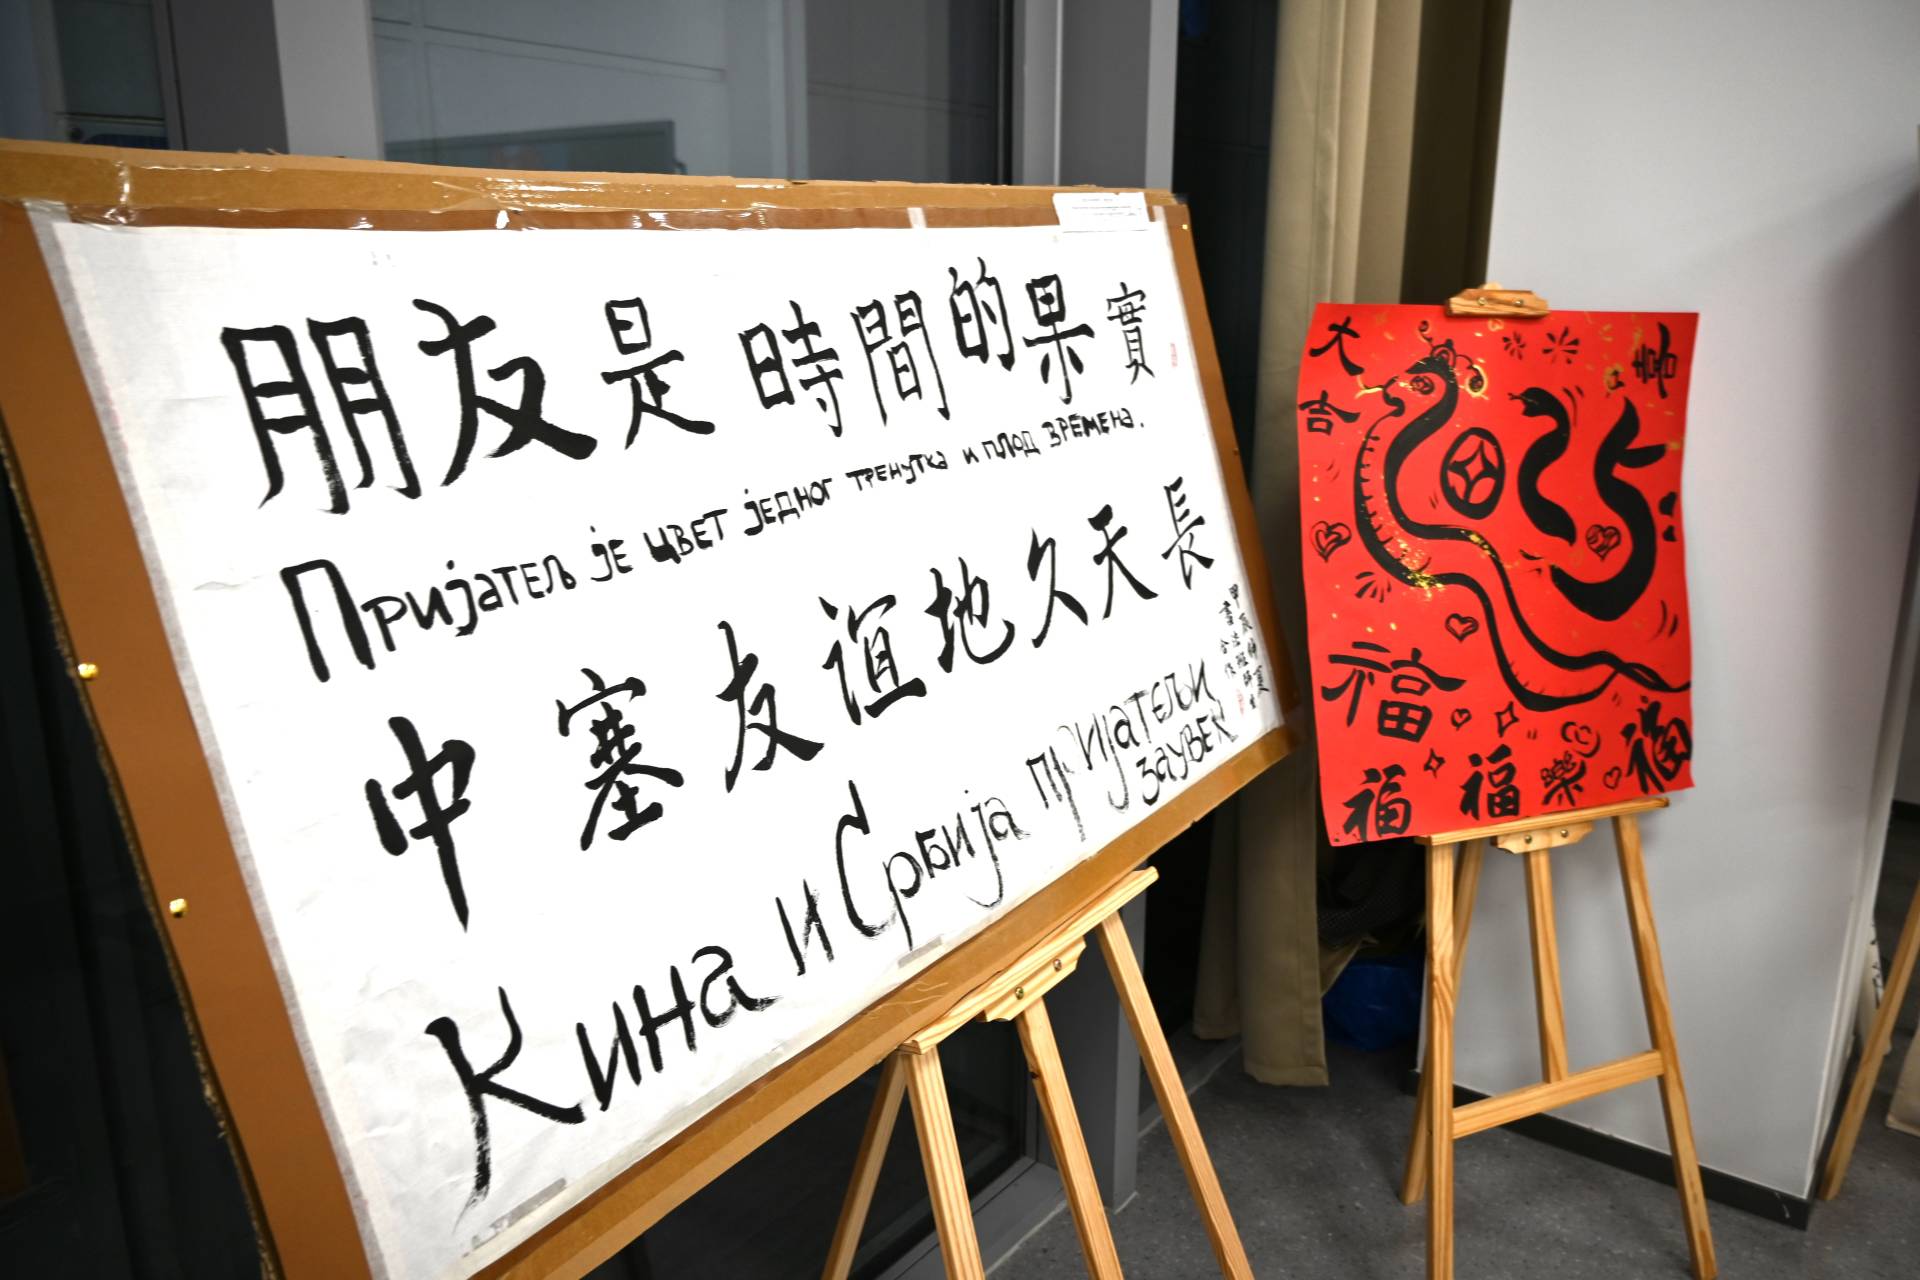 朋友是時間的果實
Пријатељ је цвет једног тренутка и плод времена.
中塞友誼地久天長
Кина и Србија пријатељи
заувек
甲辰仲夏
書法班師生
合作
大吉
喜
2025
福
福 福 樂 福